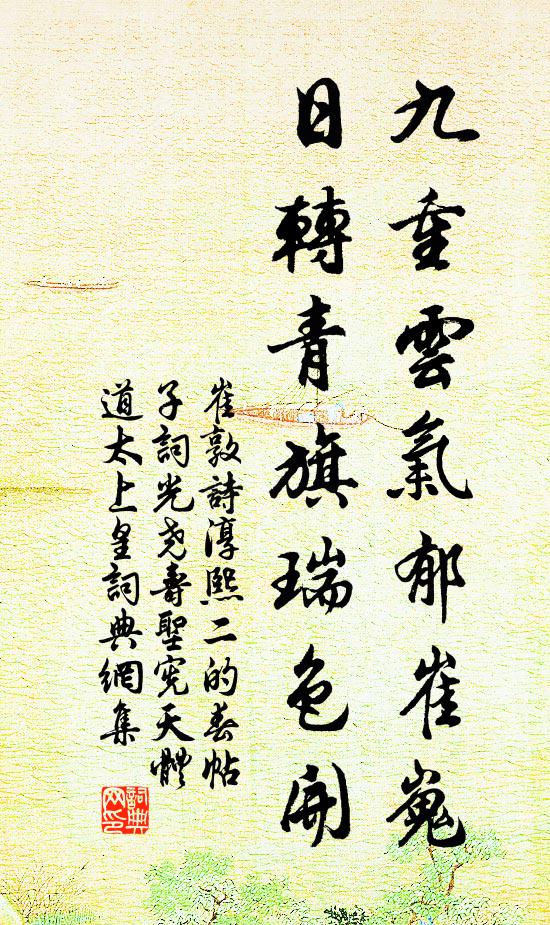 九重雲氣郁崔嵬
日轉青旗瑞色開
崔敦詩淳熙二的春帖
子詞光尧壽聖宪天體
道太上皇詞典網集
詞典
网印